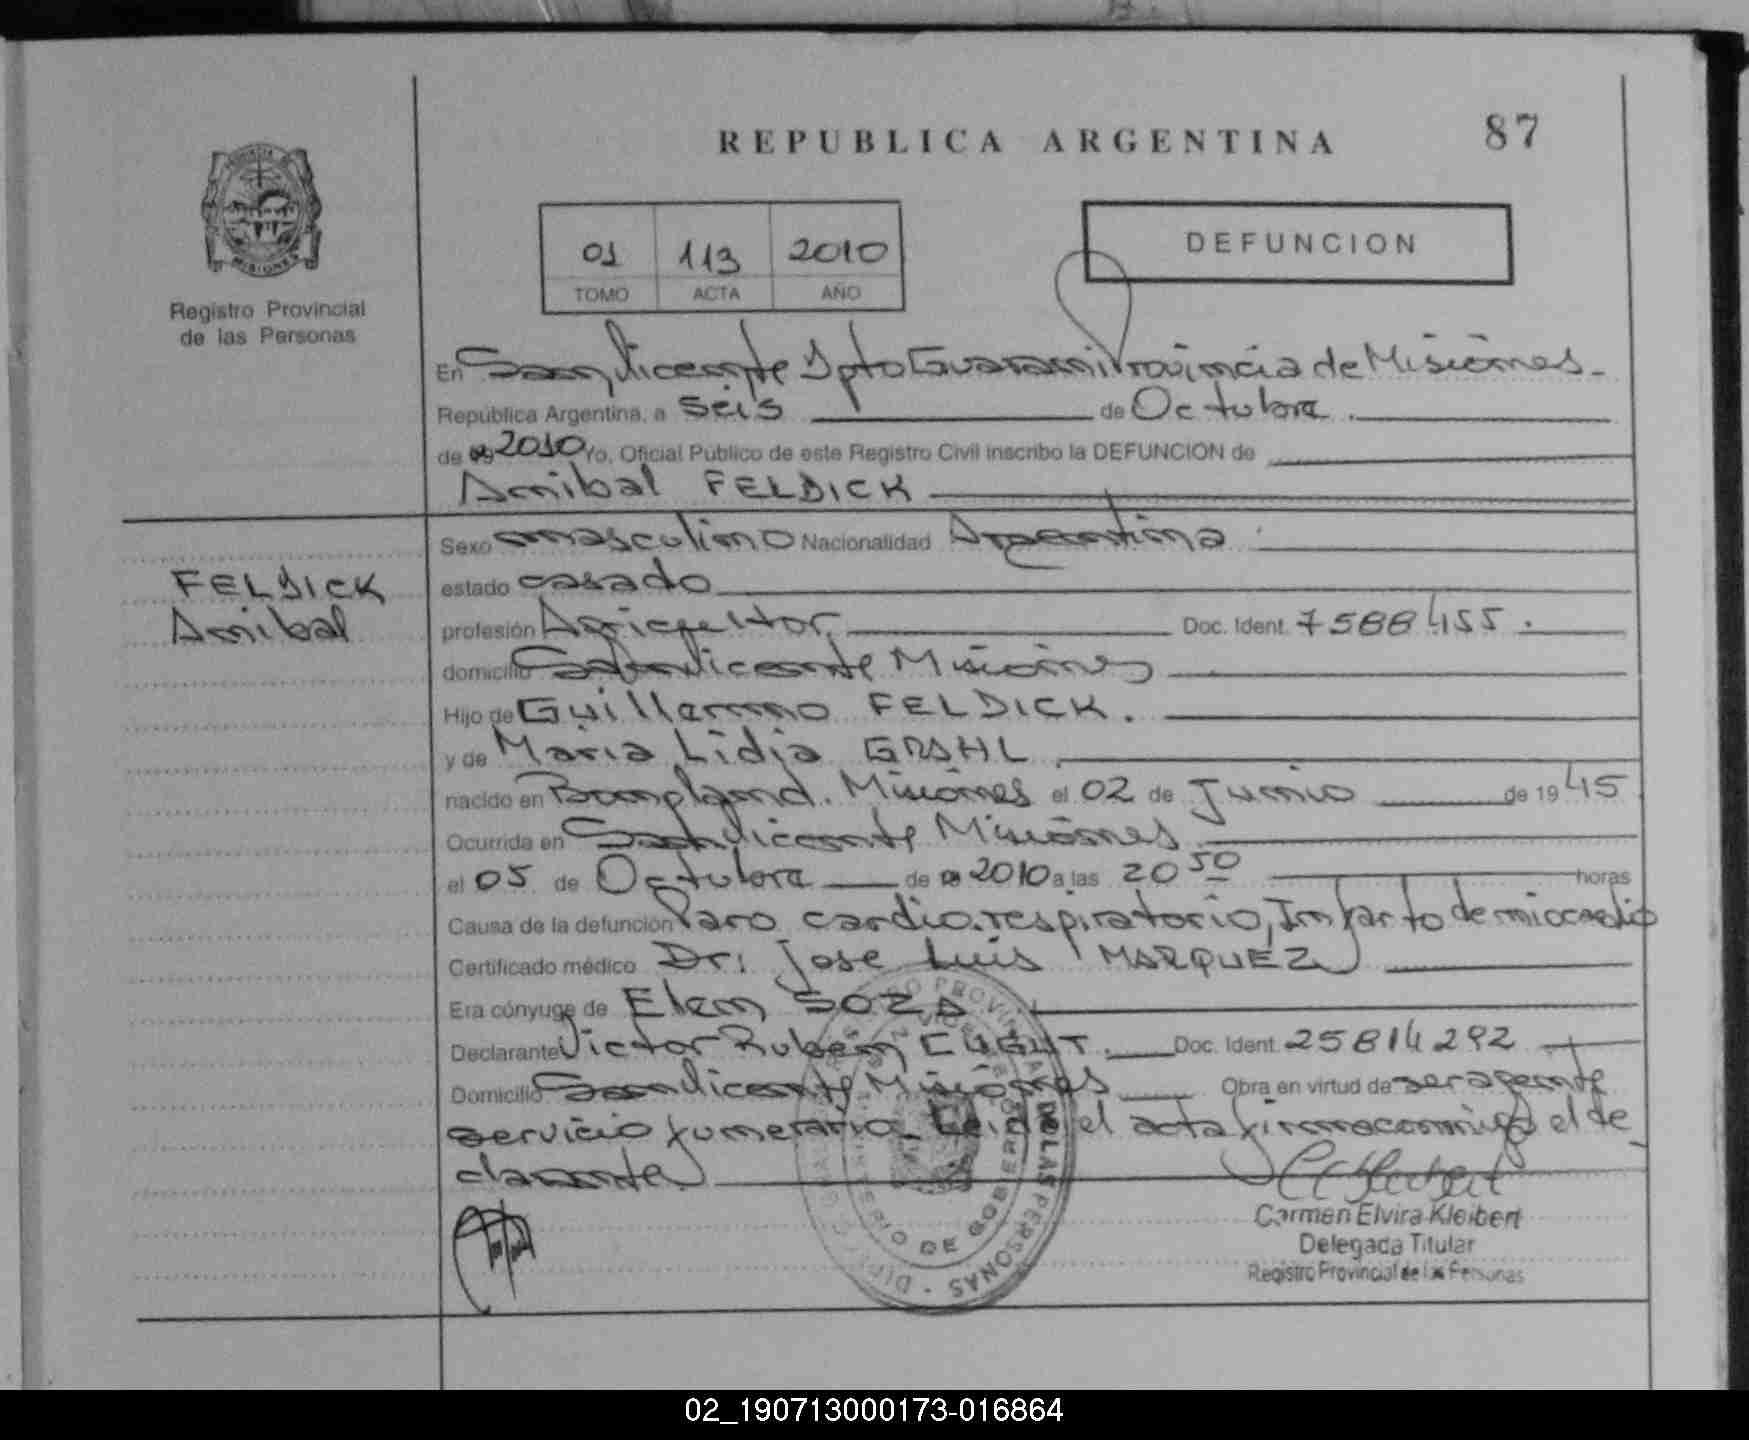 REPUBLICA ARGENTINA
87
Registro Provincial
de las Personas
01 113 2010
TOMO ACTA AÑO
DEFUNCION
En San Vicente Dpto Guarani Provincia de Misiones.-
República Argentina, a seis de Octubre.
de 2010 Yo, Oficial Público de este Registro Civil inscribo la DEFUNCION de
Anibal FELDICK
FELDICK
Anibal
Sexo masculino Nacionalidad Argentina
estado casado
profesión Agricultor Doc. Ident. 7588455.
domicilio San Vicente Misiones
Hijo de Guillermo FELDICK.
y de Maria Lidia GRAHL
nacido en Bompland. Misiones el 02 de Junio de 1945
Ocurrida en San Vicente Misiones
el 05 de Octubre de 2010 a las 20 50 horas
Causa de la defunción Paro cardio.respiratorio, Infarto de miocardio
Certificado médico Dr: Jose Luis MARQUEZ
Era cónyuge de Elena SOZA
Declarante Victor Ruben Doc. Ident. 25814292
Domicilio San Vicente Misiones Obra en virtud de ser agente
servicio funerario_ Leida el acta firma conmigo el de_
clarante
Carmen Elvira Kleibert
Delegada Titular
Registro Provincial de las Personas
02_190713000173-016864